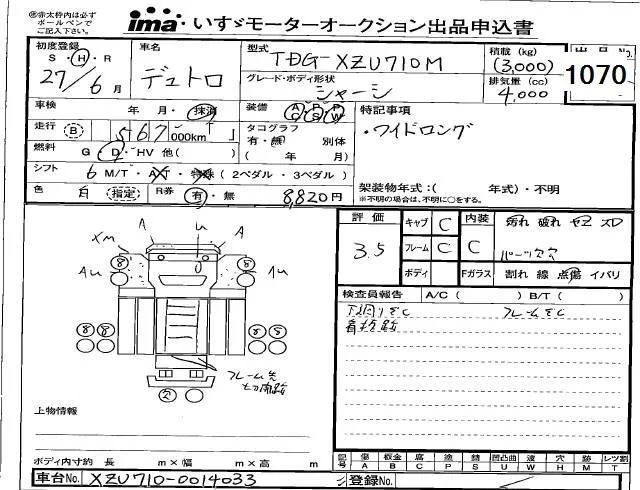 ㊟赤太枠内は必ず
ボールペンで
ご記入下さい。
ima いすゞモーターオークション出品申込書
初度登録
S・H・R
27/6月
車名
デュトロ
型式
TDG-XZU710M
グレード・ボディ形状
シャーシ
積載(kg)
(3,000)
排気量(cc)
4,000
1070
車検 年 月・抹消
装備 A/C P/S P/W
特記事項
・ワイドロング
走行 B 567,000km
タコグラフ
有・無 別体
( 年 月)
燃料 G・D・HV 他( )
シフト 6 M/T・A/T・特殊 (2ペダル・3ペダル)
色 白 指定 R券 有・無 8,820円
架装物年式:( 年式)・不明
※不明の場合は、不明に○をする。
評価
3.5
キャブ C
フレーム C
ボディ
内装 C
汚れ 破れ ヤケ スレ
パーツ欠
Fガラス 割れ 線 点傷 イバリ
検査員報告 A/C( ) B/T( )
下廻りサC フレームサC
看板跡
Xm A U A
8 8
Au Au
8 8 8 8
フレーム先
切開跡
欠
上物情報
ボディ内寸約 長 m×幅 m×高 m
記号 傷 板金 腐 塗 錆 凹凸曲 波 穴 跡 レツ割
A B C P S U W H M T
車台No. XZU710-0014033
登録No.